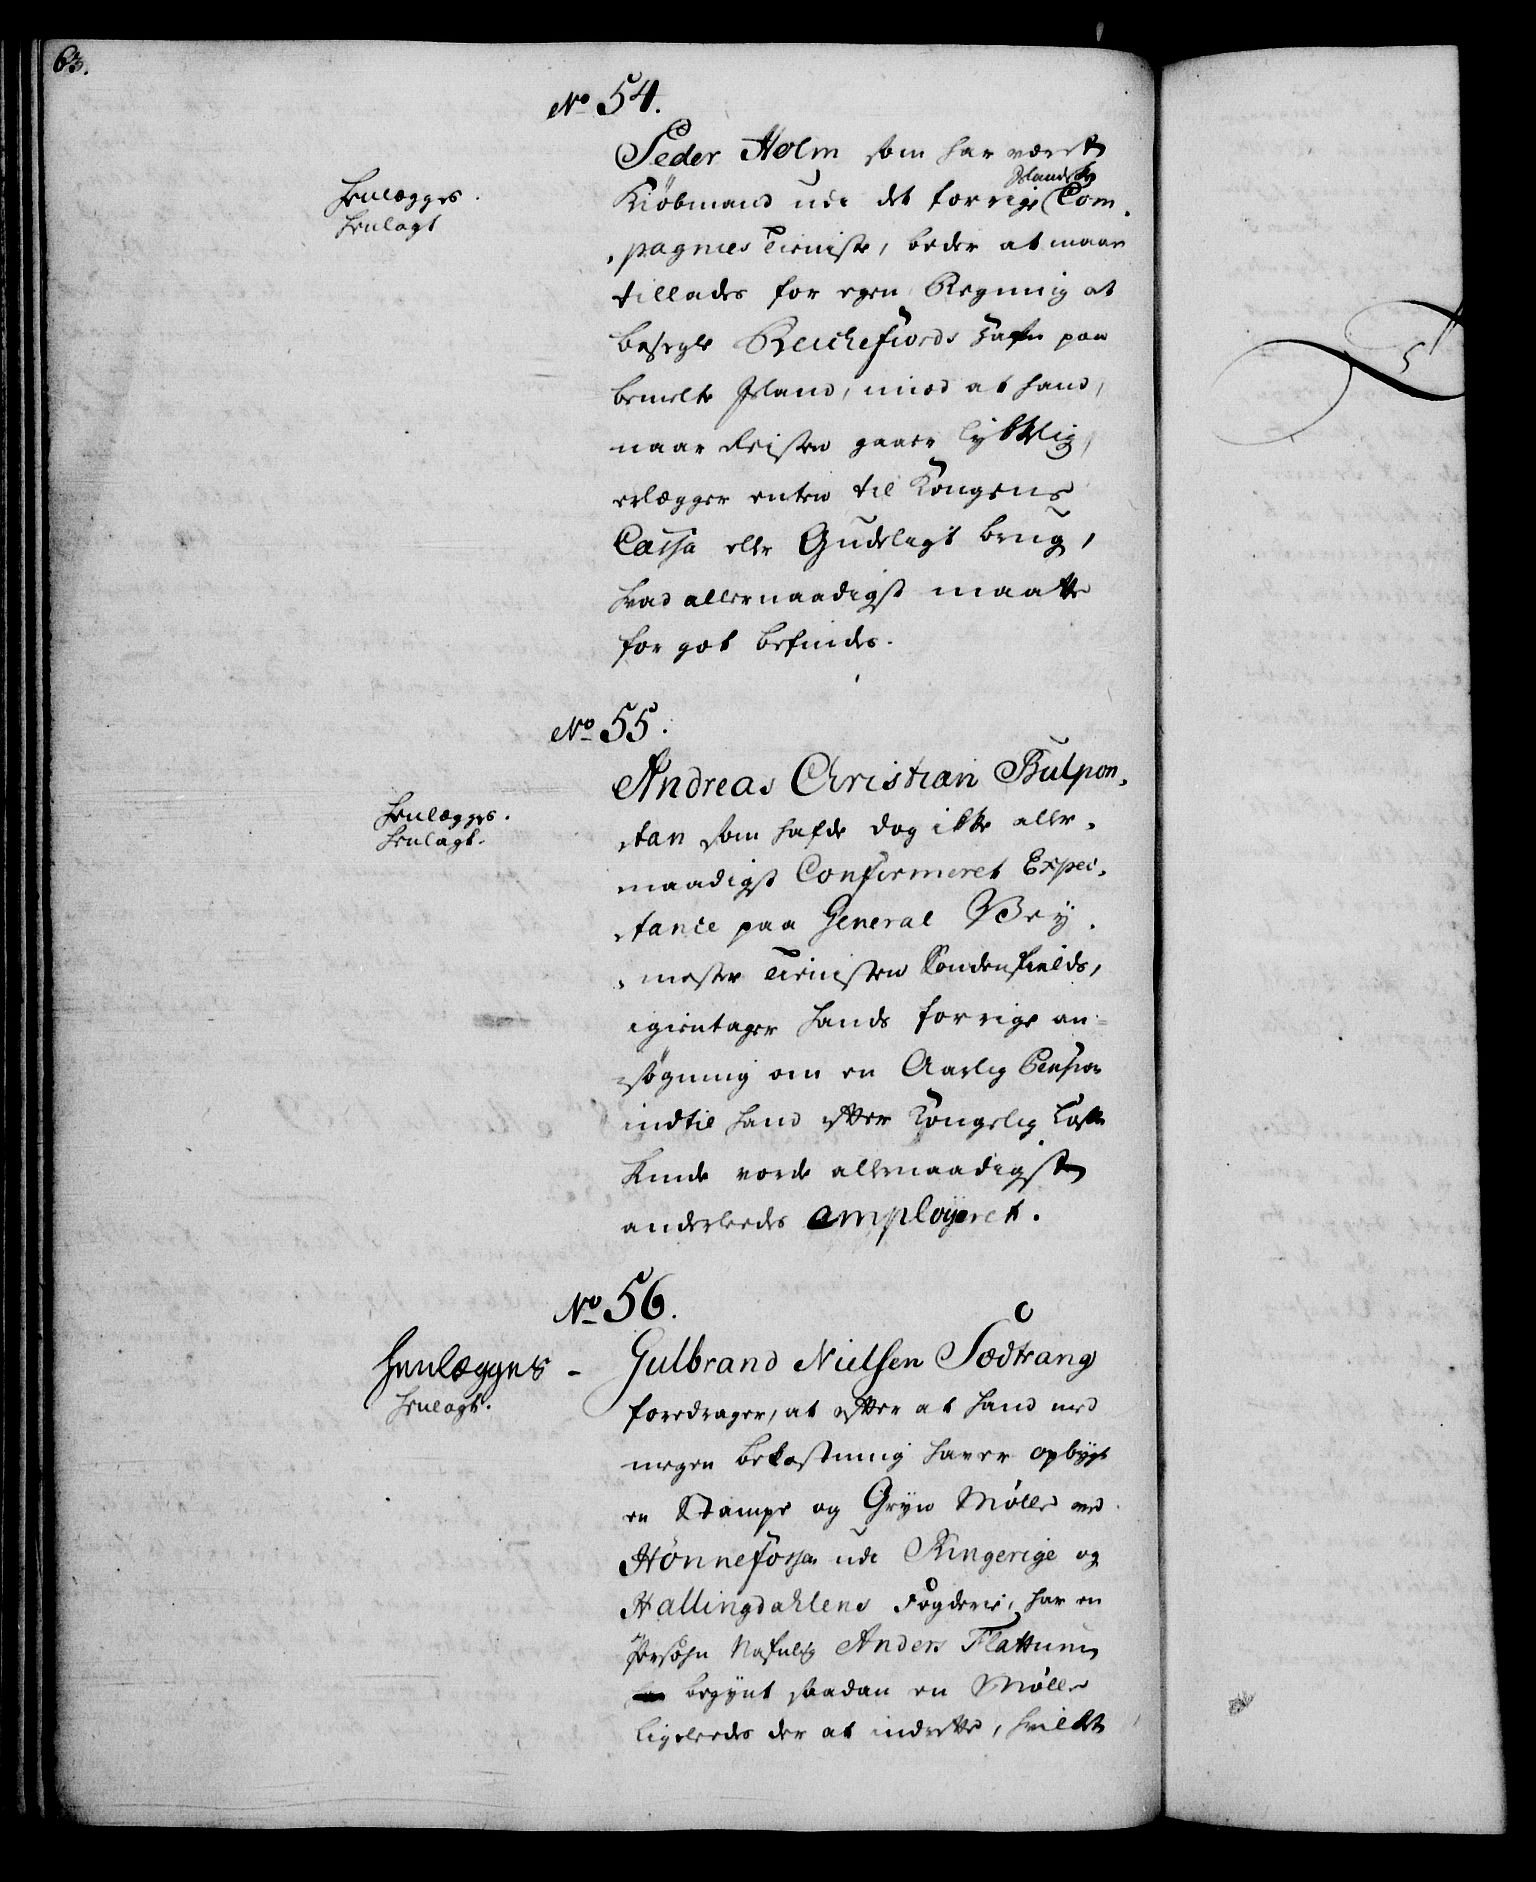 63.
No 54.
Peder Holm som har været
Kiöbmand udi det forrige Islandske Com-
-pagnies Tieniste, beder at maae
tillades for egen Regning at
besegle Reichefiords Hafn paa
bemelte Island, imod at hand,
naar Reisen gaaer lykkelig,
erlægger enten til Kongens
Cassa eller Gudeligt brug,
hvad allernaadigst maatte
for got befindes.
Henlægges.
Henlagt
No 55.
Andreas Christian Bulpon-
-tan som hafde dog ikke aller-
naadigst Confirmeret Expec-
-tance paa General Vey-
-mester Tienisten Søndenfields,
igientager hands forrige an-
søgning om en Aarlig Pension
indtil hand efter Kongelig Løfte
kunde vorde allernaadigst
anderleedes employeret.
Henlægges.
Henlagt.
No 56.
Gulbrand Nielsen Sædtrang
foredrager, at efter at hand med
megen bekostning haver opbygt
en Stampe og Gryn Mølle ved
Hönnefossen udi Ringerige og
Hallingdahlens Fogderie, har en
Persohn Nafnlig Anders Flattum
begynt saadan en Mølle
ligeleedes der at indrette, hvilket
Henlægges -
Henlagt.